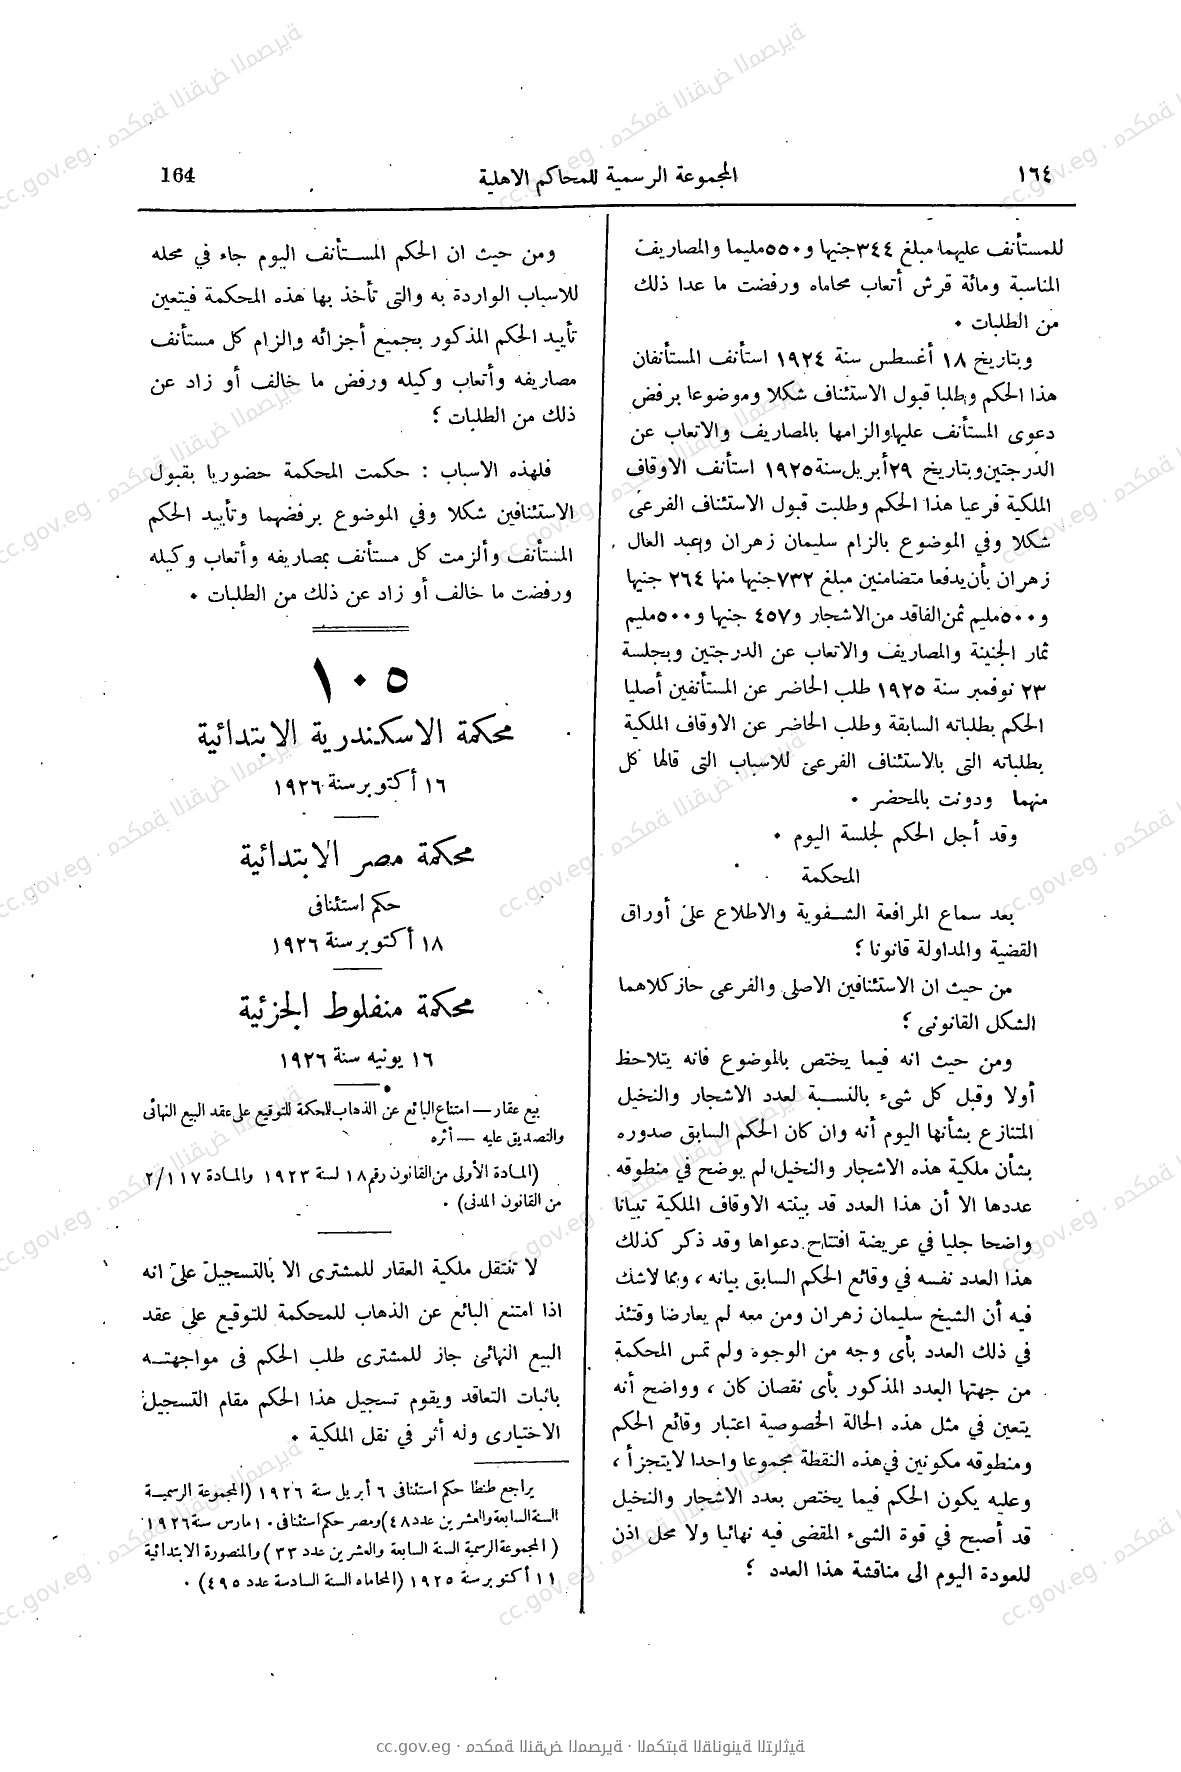 ١٦٤
المجموعة الرسمية للمحاكم الاهلية
164
للمستأنف عليهما مبلغ ٣٤٤ جنيها و ٥٥٠ مليما والمصاريف
المناسبة ومائة قرش أتعاب محاماه ورفضت ما عدا ذلك
من الطلبات .
وبتاريخ ١٨ أغسطس سنة ١٩٢٤ استأنف المستأنفان
هذا الحكم وطلبا قبول الاستئناف شكلا وموضوعا برفض
دعوى المستأنف عليها والزامها بالمصاريف والاتعاب عن
الدرجتين وبتاريخ ٢٩ أبريل سنة ١٩٢٥ استأنف الاوقاف
الملكية فرعيا هذا الحكم وطلبت قبول الاستئناف الفرعى
شكلا وفي الموضوع بالزام سليمان زهران وعبد العال
زهران بأن يدفعا متضامنين مبلغ ٧٣٢ جنيها منها ٢٦٤ جنيها
و ٥٠٠ مليم ثمن الفاقد من الاشجار و ٤٥٧ جنيها و ٥٠٠ مليم
ثمار الجنينة والمصاريف والاتعاب عن الدرجتين وبجلسة
٢٣ نوفمبر سنة ١٩٢٥ طلب الحاضر عن المستأنفين أصليا
الحكم بطلباته السابقة وطلب الحاضر عن الاوقاف الملكية
بطلباته التى بالاستئناف الفرعى للاسباب التى قالها كل
منهما ودونت بالمحضر .
وقد أجل الحكم لجلسة اليوم .
المحكمة
بعد سماع المرافعة الشفوية والاطلاع على أوراق
القضية والمداولة قانونا ؛
من حيث ان الاستئنافين الاصلى والفرعى حاز كلاهما
الشكل القانونى ؛
ومن حيث انه فيما يختص بالموضوع فانه يتلاحظ
أولا وقبل كل شىء بالنسبة لعدد الاشجار والنخيل
المتنازع بشأنها اليوم أنه وان كان الحكم السابق صدوره
بشأن ملكية هذه الاشجار والنخيل لم يوضح في منطوقه
عددها الا أن هذا العدد قد بينته الاوقاف الملكية تبيانا
واضحا جليا في عريضة افتتاح دعواها وقد ذكر كذلك
هذا العدد نفسه في وقائع الحكم السابق بيانه ، ومما لاشك
فيه أن الشيخ سليمان زهران ومن معه لم يعارضا وقتئذ
في ذلك العدد بأى وجه من الوجوه ولم تمس المحكمة
من جهتها العدد المذكور بأى نقصان كان ، وواضح أنه
يتعين في مثل هذه الحالة الخصوصية اعتبار وقائع الحكم
ومنطوقه مكونين في هذه النقطة مجموعا واحدا لايتجزأ ،
وعليه يكون الحكم فيما يختص بعدد الاشجار والنخيل
قد أصبح في قوة الشىء المقضى فيه نهائيا ولا محل اذن
للعودة اليوم الى مناقشة هذا العدد ؛
ومن حيث ان الحكم المستأنف اليوم جاء في محله
للاسباب الواردة به والتى تأخذ بها هذه المحكمة فيتعين
تأييد الحكم المذكور بجميع أجزائه والزام كل مستأنف
مصاريفه وأتعاب وكيله ورفض ما خالف أو زاد عن
ذلك من الطلبات ؛
فلهذه الاسباب : حكمت المحكمة حضوريا بقبول
الاستئنافين شكلا وفي الموضوع برفضهما وتأييد الحكم
المستأنف وألزمت كل مستأنف بمصاريفه وأتعاب وكيله
ورفضت ما خالف أو زاد عن ذلك من الطلبات .
١٠٥
محكمة الاسكندرية الابتدائية
١٦ أكتوبر سنة ١٩٢٦
محكمة مصر الابتدائية
حكم استئنافى
١٨ أكتوبر سنة ١٩٢٦
محكمة منفلوط الجزئية
١٦ يونيه سنة ١٩٢٦
بيع عقار — امتناع البائع عن الذهاب للمحكمة للتوقيع على عقد البيع النهائى
والتصديق عليه — أثره
(المادة الأولى من القانون رقم ١٨ لسنة ١٩٢٣ والمادة ٢/١١٧
من القانون المدنى) .
لا تنتقل ملكية العقار للمشترى الا بالتسجيل على انه
اذا امتنع البائع عن الذهاب للمحكمة للتوقيع على عقد
البيع النهائى جاز للمشترى طلب الحكم فى مواجهته
باثبات التعاقد ويقوم تسجيل هذا الحكم مقام التسجيل
الاختيارى وله أثر في نقل الملكية .
يراجع طنطا حكم استئنافى ٦ أبريل سنة ١٩٢٦ (المجموعة الرسمية
السنة السابعة والعشرين عدد ٤٨) ومصر حكم استئنافى ١٠ مارس سنة ١٩٢٦
(المجموعة الرسمية السنة السابعة والعشرين عدد ٣٣) والمنصورة الابتدائية
١١ أكتوبر سنة ١٩٢٥ (المحاماه السنة السادسة عدد ٤٩٥) .
cc.gov.eg · محكمة النقض المصرية · المكتبة القانونية التراثية